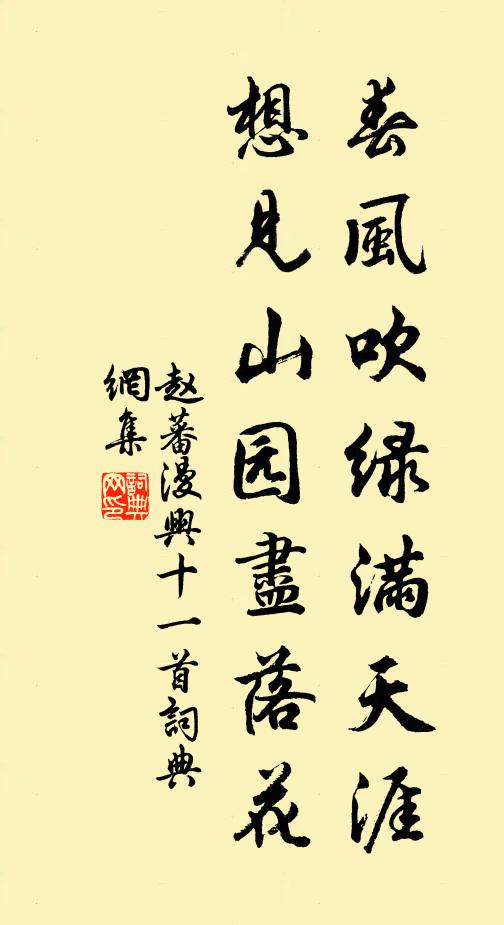 春風吹绿滿天涯
想見山园盡落花
赵蕃漫興十一首詞典
網集
詞典
网印